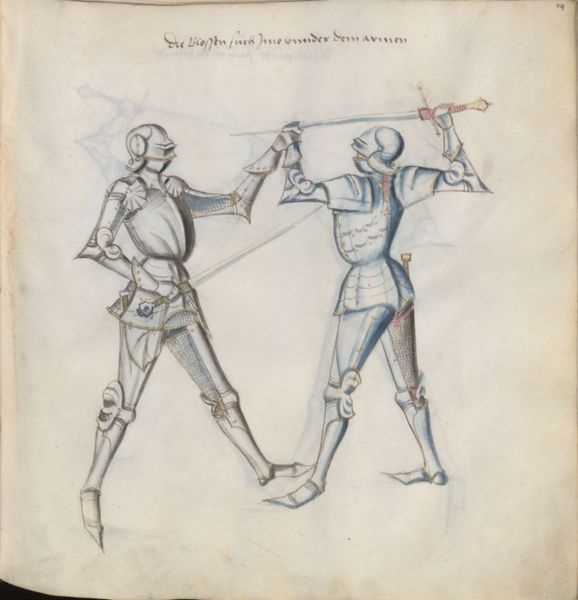 24
Die Blossen such Jme vnnder dem armen